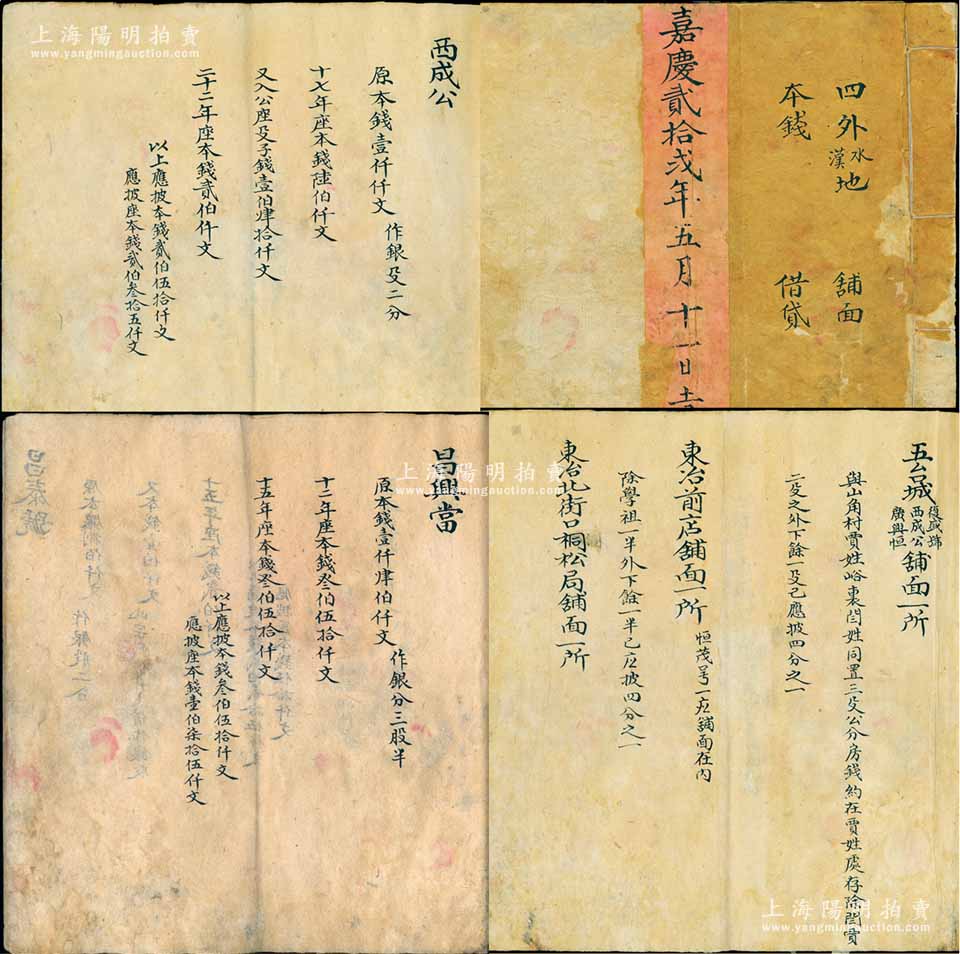 上海陽明拍賣
www.yangmingauction.com
西成公
原本錢壹仟仟文 作銀㕛二分
十七年座本錢陸伯仟文
又入公座㕛子錢壹伯肆拾仟文
二十二年座本錢貳伯仟文
以上應披本錢貳伯伍拾仟文
應披座本錢貳伯叁拾五仟文
四外水漢地 舖面
本錢 借貸
嘉慶貳拾弍年五月十一日
昌興當
原本錢壹仟肆伯仟文 作銀分三股半
十二年座本錢叁伯伍拾仟文
十五年座本錢叁伯伍拾仟文
以上應披本錢叁伯伍拾仟文
應披座本錢壹伯柒拾伍仟文
昌泰號
上海陽明拍賣
www.yangmingauction.com
五台城復盛號西成公廣興恒舖面一所
與山角村賈姓峪裏閆姓同置三㕛公分房錢約在賈姓處存除閆賈
二㕛之外下餘一㕛己應披四分之一
東冶前店舖面一所 恒茂号一应舖面在内
除學祖一半外下餘一半己应披四分之一
東冶北街口桐松局舖面一所
上海陽明拍賣
www.yangmingauction.com